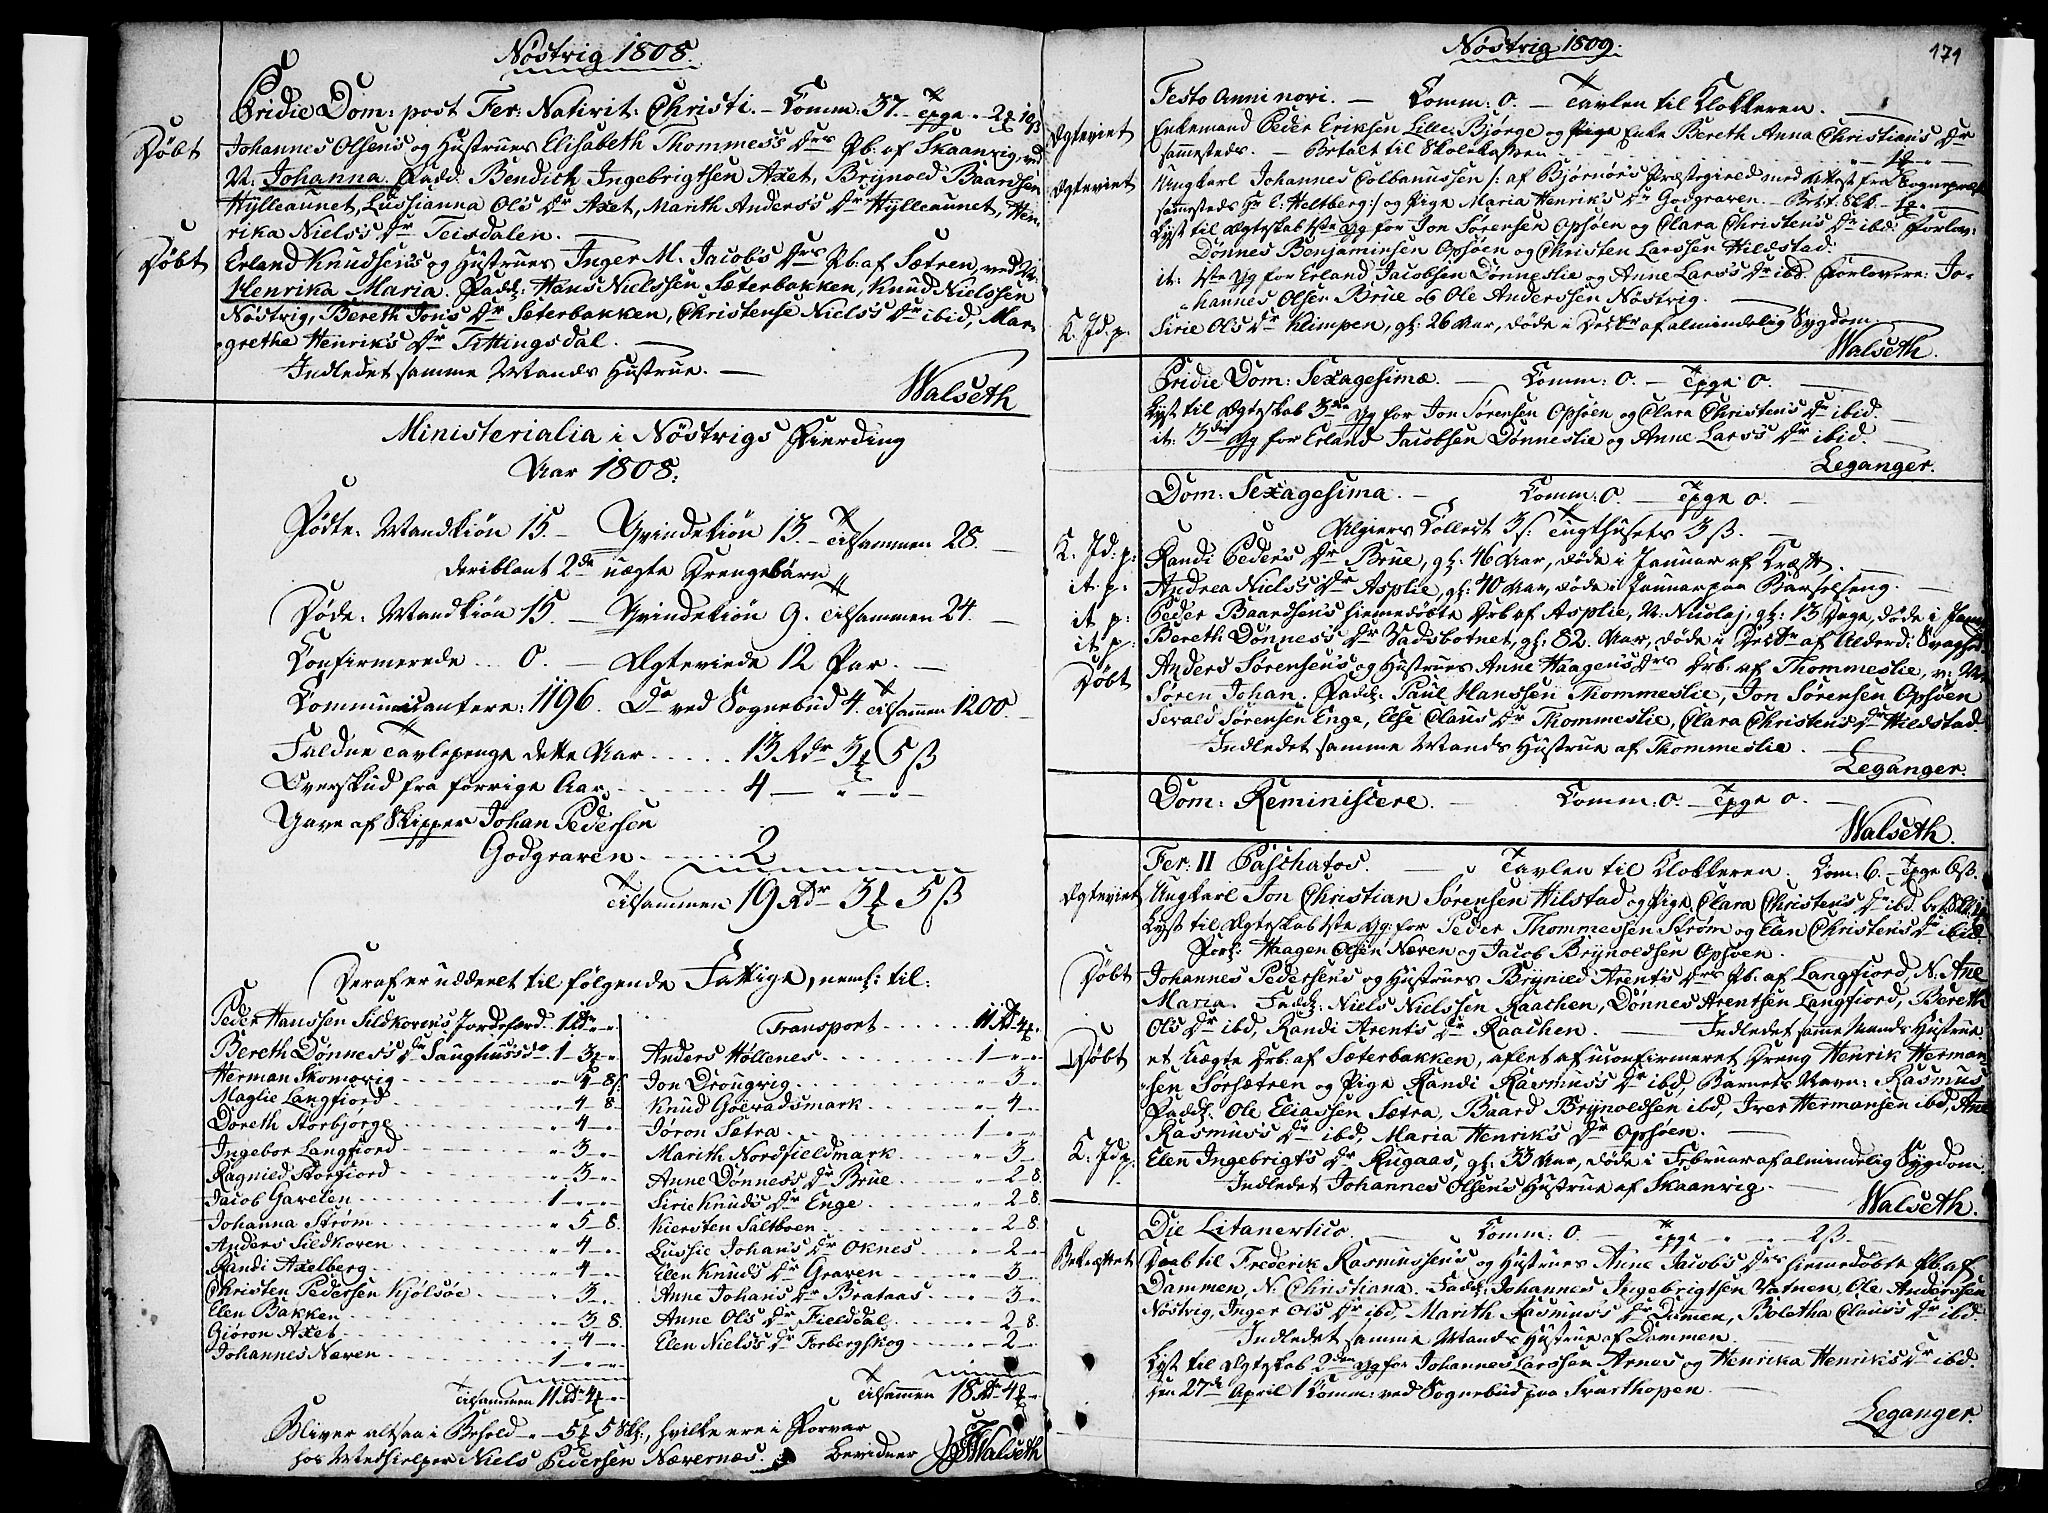 Nöstvig 1808.
Pridie Dom: post Fer: Nativit: Christi. – Comm: 37. – Tpge
Döbt Johannes Olsens og Hustrues Elisabeth Thommess Drs Pb. af Skaanvig, ved
N. Johanna. Fadd. Bendick Ingebrigtsen Axet, Brynold Baardsen
Hÿlleaunet, Lussianna Ols Dr Axet, Marith Anders's Dr Hÿlleaunet, Hen-
rika Niels's Dr Teisdalen.
Döbt Erland Knudsens og Hustrues Inger M. Jacobs Drs Pb: af Sætren, ved N.
Henrika Maria. Fadd: Hans Nielssen Sæterbakken, Knud Nielssen
Nöstvig, Bereth Jons Dr Seterbakken, Christense Niels's Dr ibid, Mar-
grethe Henriks Dr Fittingsdal.
Indledet samme Mands Hustrue.
Walseth
Ministerialia i Nöstvigs Fierding
Aar 1808:
Födte: Mandkiön 15. – Qvindekiön 13. – Tilsammen 28.
deriblant 2de uægte Drengebörn
Döde: Mandkiön 15. – Qvindekiön 9. – Tilsammen 24.
Confirmerede .. 0. – Ægteviede 12 Par.
Communicantere: 1196. Do ved Sognebud 4. Tilsammen 1200.
Faldne Tavlepenge dette Aar ..... 13 Rdr 3 5 ß
Overskud fra forrige Aar ..... 4 — " — " —
Gave af Skipper Johan Pedersen
Godgraven ..... 2
Tilsammen 19 Rdr 3 5 ß
Deraf er uddeelt til fölgende Fattige, neml: til:
Peder Hanssen Sildkovens Jordefærd 1 Rdr " "
Bereth Dönness Dr Saughuss do 1 – 3 "
Herman Skomovig " 4 – 8 ß
Maglie Langfiord " 4 – 8.
Doreth Storbjörge " 4 – "
Ingebor Langfiord " 3 – "
Ragnied Storfiord " 3 – "
Jacob Gavelen 1 – " – "
Johanna Ström " 5 – 8.
Anders Sildkoven " 4 – "
Randi Axelberg " 4 – "
Christen Pedersen Kjölsöe " 3 – "
Elen Bakken " 3 8.
Giöron Axet " 4 – "
Johannes Næven 1 – " – "
Tilsammen 11 Rdr 4
Transport ..... 11 Rdr 4
Anders Höllenes 1 – " – "
Jon Drougvig " – 3 – "
Knud Goevadsmark " – 4 – "
Jöron Sætra 1 – " – "
Marith Nordfieldmark " – 3 – "
Anne Dönness Dr Brue " – 2 8
Sirie Knuds Dr Enge " – 2 8.
Kiersten Saltboen " – 2 8
Lussie Johans Dr Oknes " – 2 – "
Elen Knuds Dr Graven " – 3 –
Anne Johans Dr Brataas " – 3 – "
Anne Ols Dr Fielddal " – 2 8.
Elen Niels's Dr Forbergskog " – 2 –
Tilsammen 18 Rdr 4
Bliver altsaa i Behold " 5 5 Skl:, hvilke ere i Forvar
hos Medhielper Niels Pedersen Nævernes. Bevidner Walseth
Nöstvig 1809.
171
Festo Anni novi. – Comm: 0. – Tavlen til Klokkeren.
Ægteviet Enkemand Peder Eriksen Lille-Bjørge og Enke Bereth Anna Christians Dr
sammesteds. – Betalt til Skolekassen
Ægteviet Ungkarl Johannes Colbanussen /: af Bjørnörs Præstegield med Attest fra Sognepræst
sammesteds Hr C: Heltberg :/ og Pige Maria Henriks Dr Godgraven.
Lyst til Ægteskab 1ste Gg for Jon Sörensen Opsöen og Clara Christens Dr ibid: Forlov:
Dönnes Benjaminsen Opsöen og Christen Larssen Hildstad.
it: 1ste Gg for Erland Jacobsen Dönneslie og Anne Lars's Dr ibid. Forlovere: Jo-
hannes Olsen Brue og Ole Anderssen Nöstvig.
K. Jd. p. Sirie Ols Dr Klimpen, gl: 26 Aar, döde i Decbr af almindelig Sygdom.
Walseth.
Pridie Dom: Sexagesimæ. – Comm: 0. – Tpge 0.
Lyst til Ægteskab 3die Gg for Jon Sörensen Opsöen og Clara Christens Dr ibid.
it: 3die Gg for Erland Jacobsen Dönneslie og Anne Lars's Dr ibid.
Leganger.
Dom: Sexagesima. – Comm: 0. – Tpge 0.
Algiers Collect 3 ß: Tugthusets 3 ß.
K. Jd: p: Randi Peders Dr Brue, gl: 46 Aar, döde i Januar af Kræft.
it. p. Andrea Niels's Dr Asplie, gl: 40 Aar, döde i Januar paa Barselseng.
it p: Peder Baardsens hiemedöbte Drb af Asplie, N: Nicolaj, gl: 13 Dage, döde i
it p. Bereth Dönness Dr Vadsbotnet, gl: 82. Aar, döde i Decbr af Alderd: Svaghed.
Döbt Anders Sörensens og Hustrues Anne Haagens Drs Drb. af Thommeslie, v: N.
Sören Johan. Fadd: Paul Hanssen Thommeslie, Jon Sörensen Opsöen
Sivald Sörensen Enge, Else Claus Dr Thommeslie, Clara Christens Dr Hildstad.
Indledet samme Mands Hustrue af Thommeslie.
Leganger.
Dom: Reminiscere. – Comm: 0. – Tpge 0.
Walseth.
Fer: II Paschatos. – Tavlen til Klokkeren. Com: 6. – Tpge 6 ß.
Ægteviet Ungkarl Jon Christian Sörensen Hilstad og Pige Clara Christens Dr ibd.
Lyst til Ægteskab 1ste Gg. for Peder Thommessen Ström og Elen Christens Dr ibid.
Forl: Haagen Olsen Næven og Jacob Brynoldsen Opsöen.
Döbt Johannes Pedersens og Hustrues Brynied Arents Drs Pb. af Langfiord, N: Ane
Maria. Fadd: Niels Nielssen Raachen, Dönnes Arentsen Langfiord, Bereth
Ols Dr ibd, Randi Arents Dr Raachen. – Indledet samme Mands Hustrue.
Döbt et Uægte Drb. af Sæterbakken, aflet af uconfirmeret Dreng Henrik Herman-
sen Sörsætren og Pige Randi Rasmus's Dr ibd, Barnets Navn: Rasmus
Fadd: Ole Eliassen Sætra, Baard Brynoldsen ibd, Iver Hermansen ibd, Ane
Rasmuss Dr ibd, Maria Henriks Dr Opsöen.
K: Jd p. Elen Ingebrigts Dr Rugaas, gl: 33 Aar, döde i Februar af almindelig Sygdom.
Indledet Johannes Olsens Hustrue af Skaanvig.
Walseth.
Die Litanevtico. – Comm: 0. – Tpge " " 2 ß.
Bekræftet Daab til Frederik Rasmussens og Hustrues Anne Jacobs Drs hiemedöbte Pb. af
Dammen, N. Christiana. Fadd: Johannes Ingebrigtsen Vatnen, Ole Anderssen
Nöstvig, Inger Ols Dr ibd, Marith Rasmus's Dr Dammen, Boletha Claus's Dr ibd.
Indledet samme Mands Hustrue af Dammen.
Lyst til Ægteskab 2den Gg for Johannes Larssen Arnes og Henrika Henriks Dr ibd.
Den 27de April 1 Comm: ved Sognebud paa Svarthopen.
Leganger.